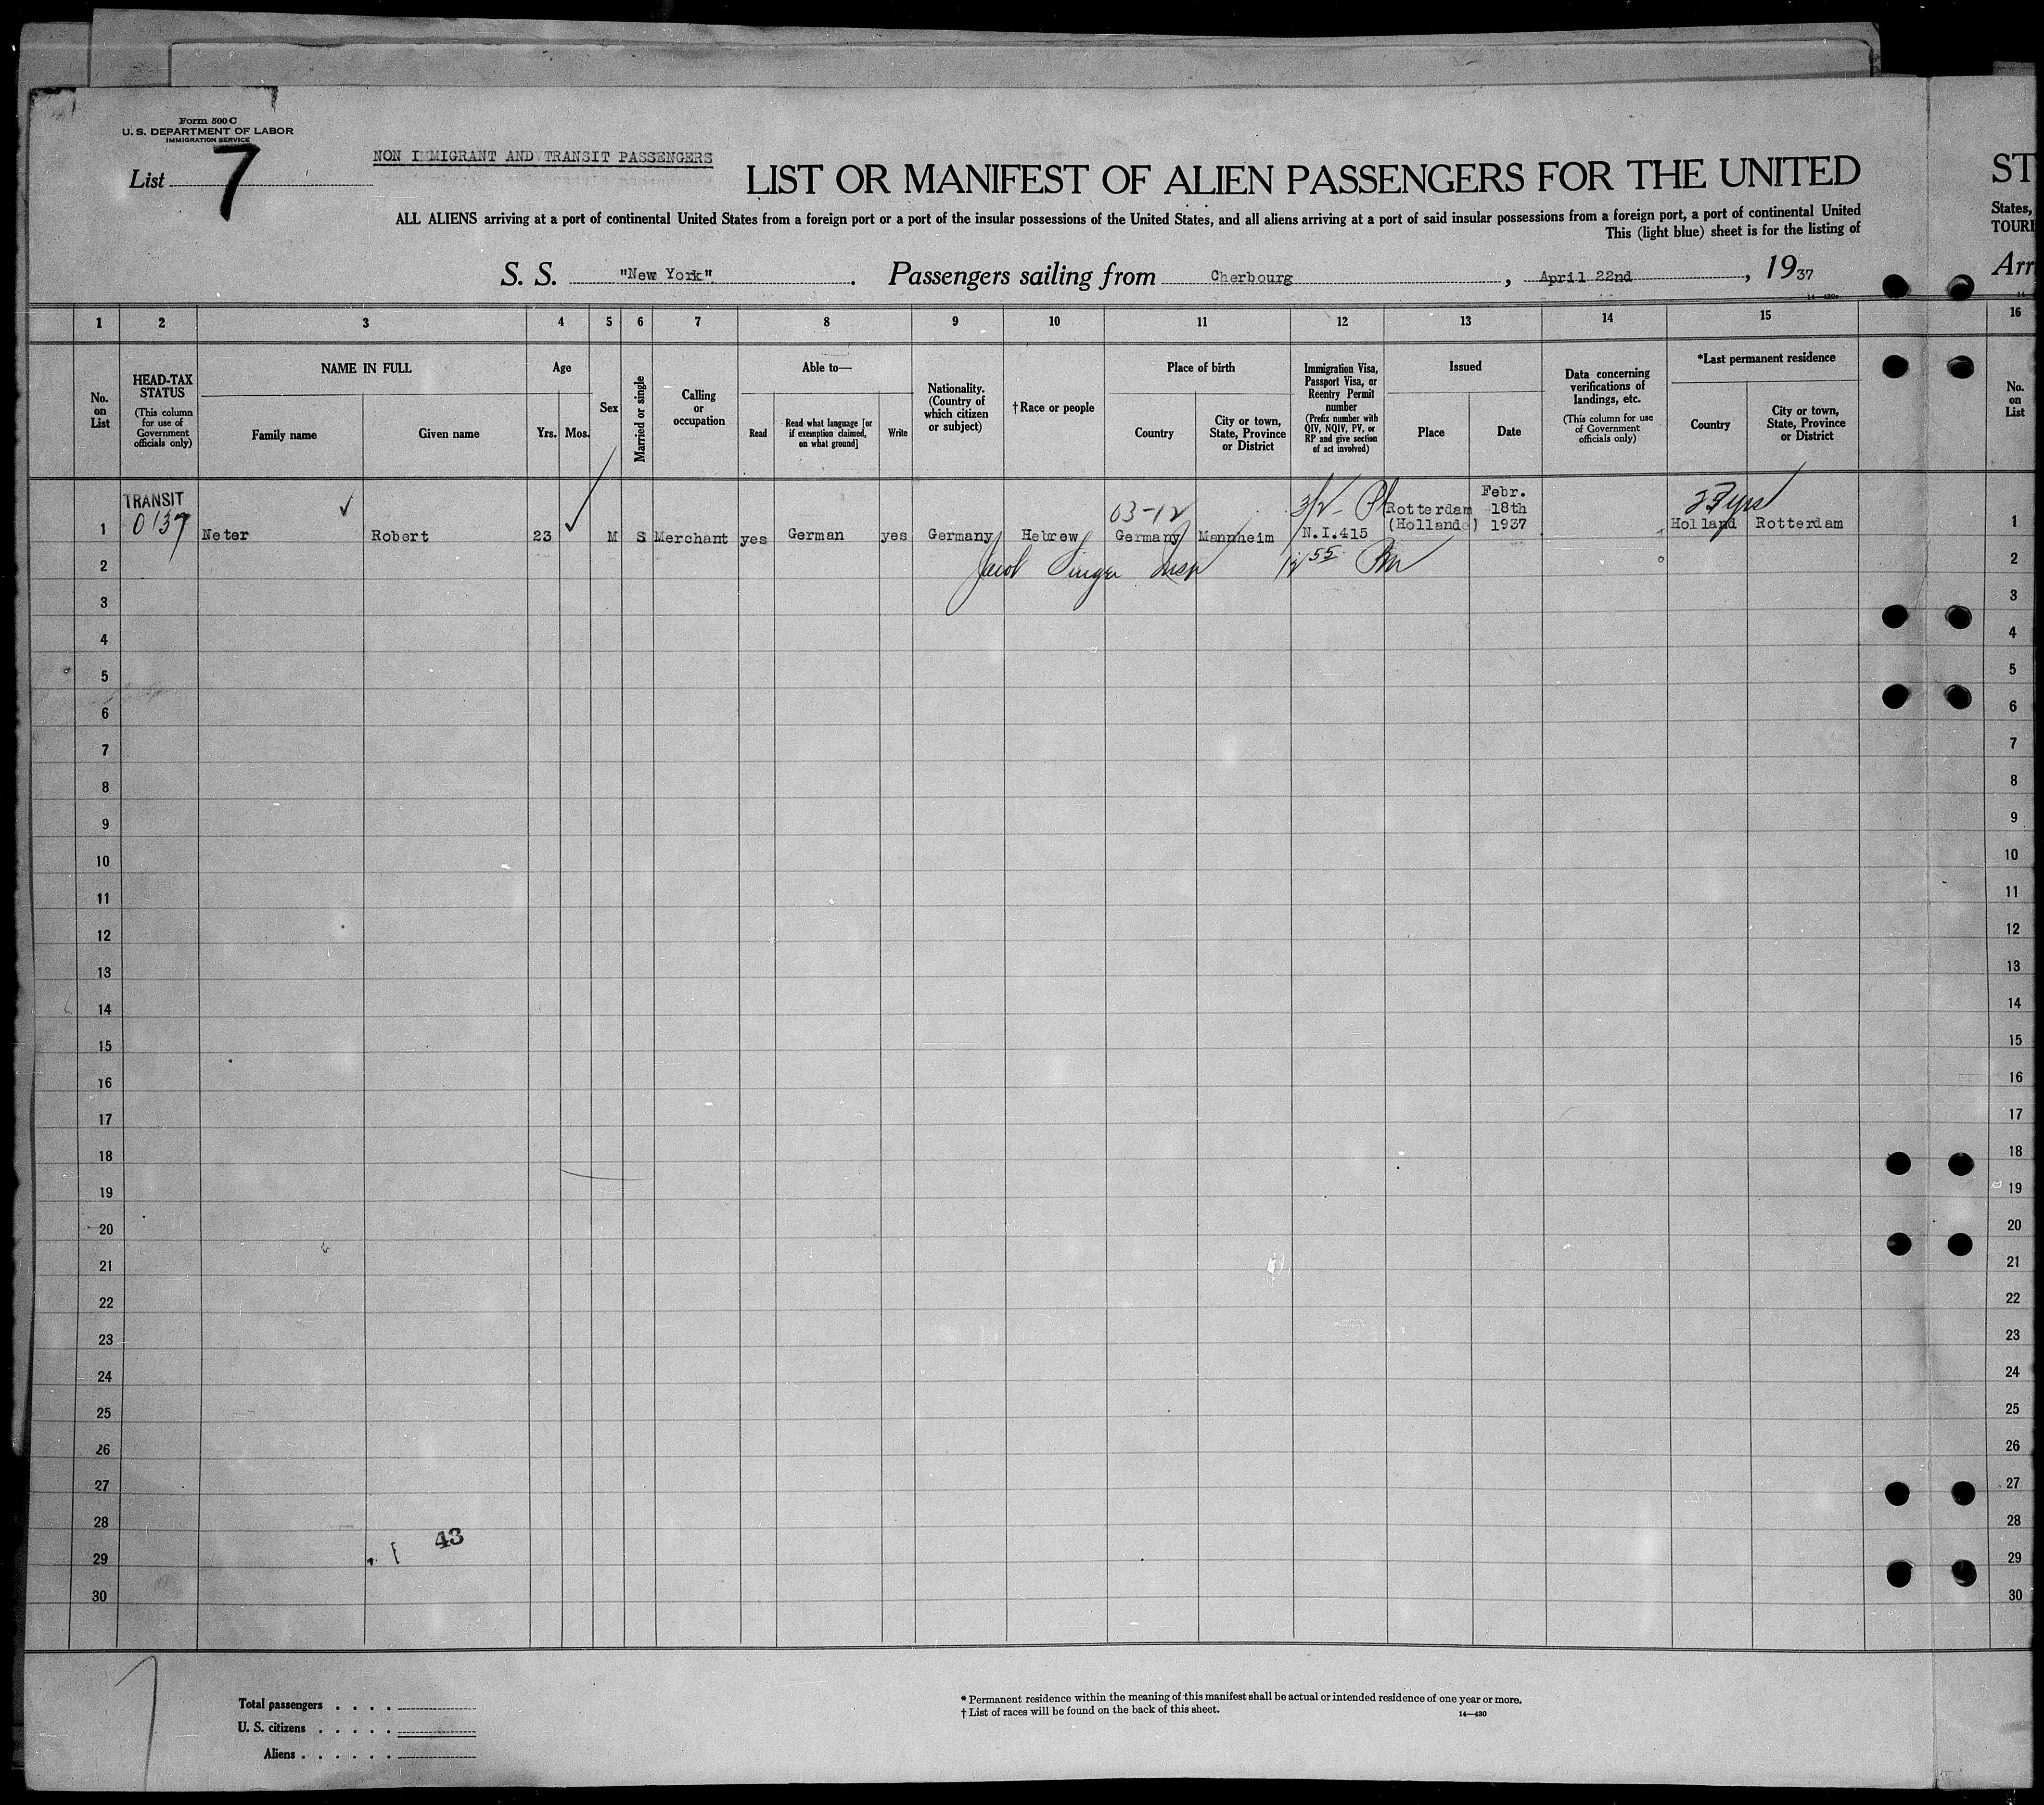 Form 500 C
U. S. DEPARTMENT OF LABOR
IMMIGRATION SERVICE
List 7
NON IMMIGRANT AND TRANSIT PASSENGERS
LIST OR MANIFEST OF ALIEN PASSENGERS FOR THE UNITED
ST
ALL ALIENS arriving at a port of continental United States from a foreign port or a port of the insular possessions of the United States, and all aliens arriving at a port of said insular possessions from a foreign port, a port of continental United
States,
This (light blue) sheet is for the listing of
TOURI
S. S. "New York". Passengers sailing from Cherbourg, April 22nd, 1937
Arr
1 2 3 4 5 6 7 8 9 10 11 12 13 14 15 16
No. on List
HEAD-TAX STATUS
(This column for use of Government officials only)
NAME IN FULL
Family name
Given name
Age
Yrs. Mos.
Sex
Married or single
Calling or occupation
Able to—
Read
Read what language [or if exemption claimed, on what ground]
Write
Nationality. (Country of which citizen or subject)
†Race or people
Place of birth
Country
City or town, State, Province or District
Immigration Visa, Passport Visa, or Reentry Permit number
(Prefix number with QIV, NQIV, PV, or RP and give section of act involved)
Issued
Place
Date
Data concerning verifications of landings, etc.
(This column for use of Government officials only)
*Last permanent residence
Country
City or town, State, Province or District
No. on List
TRANSIT
0137
03-12
3/2
23 yrs
1 Neter Robert 23 M S Merchant yes German yes Germany Hebrew Germany Mannheim N.I.415 Rotterdam (Hollande) Febr. 18th 1937 Holland Rotterdam 1
2 Jacob Singer Insp 12 55 2
3 3
4 4
5 5
6 6
7 7
8 8
9 9
10 10
11 11
12 12
13 13
14 14
15 15
16 16
17 17
18 18
19 19
20 20
21 21
22 22
23 23
24 24
25 25
26 26
27 27
28 28
43
29 29
30 30
Total passengers . . . .
U. S. citizens . . . . .
Aliens . . . . . .
* Permanent residence within the meaning of this manifest shall be actual or intended residence of one year or more.
† List of races will be found on the back of this sheet.
14—430